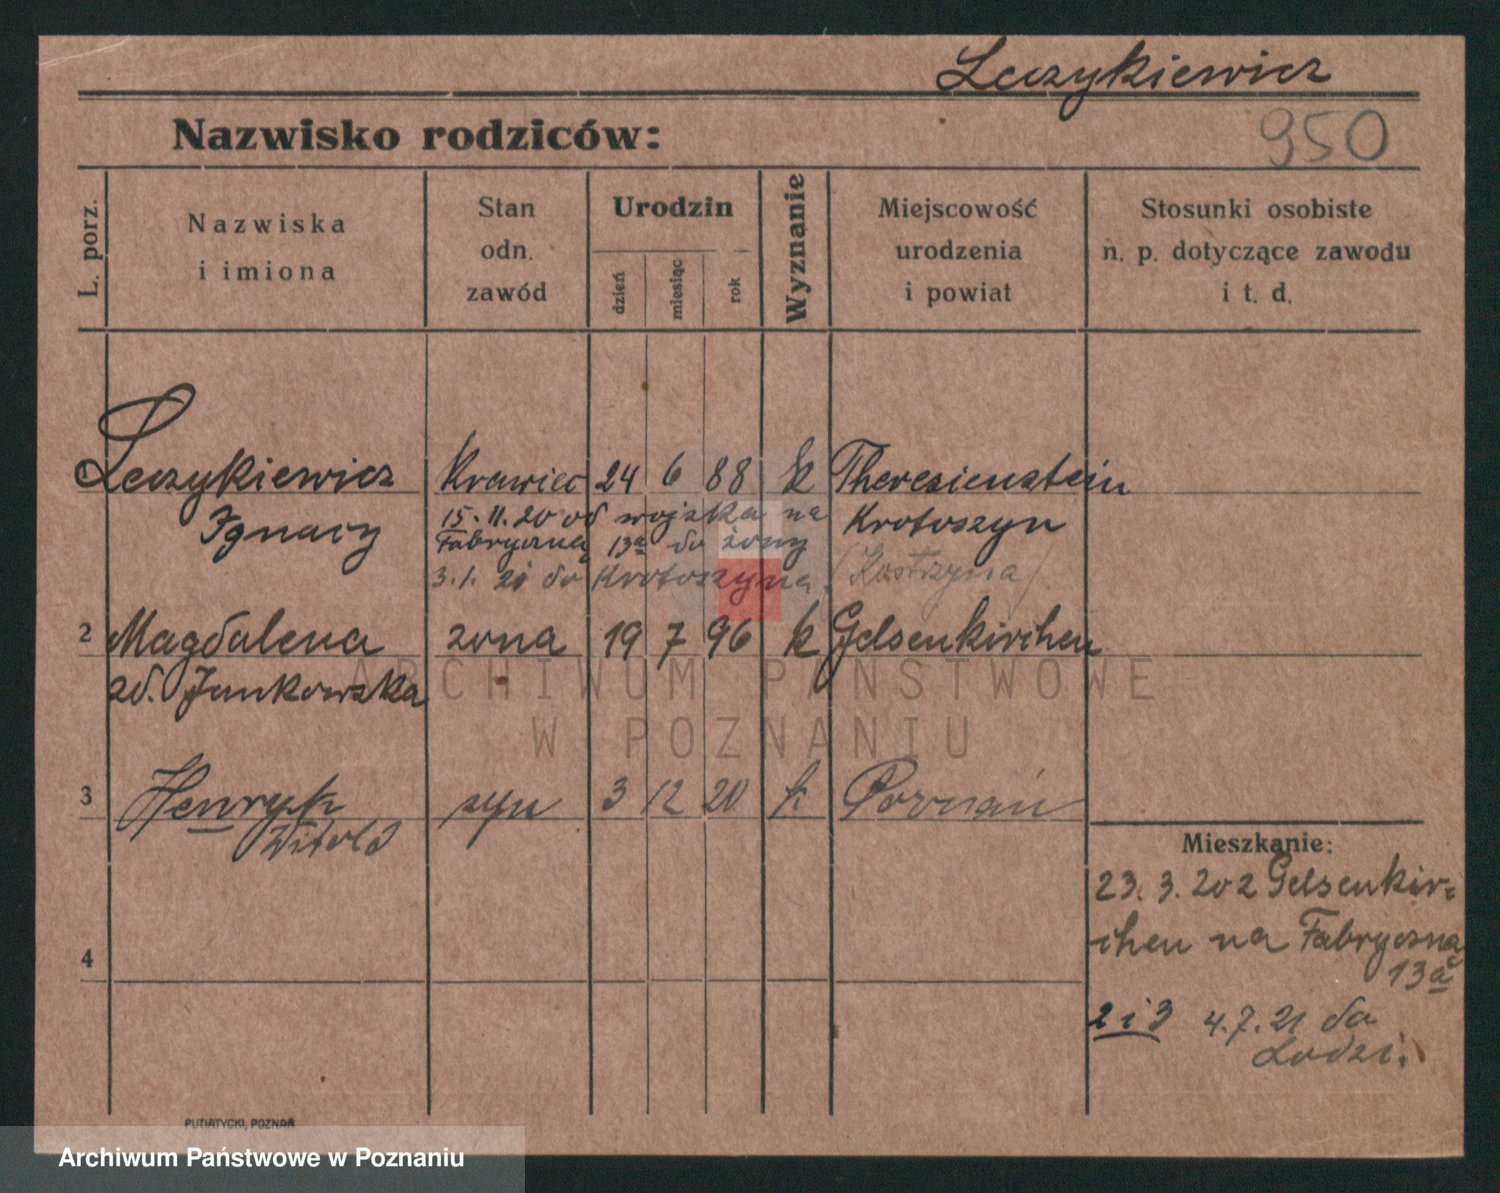 Leczykiewicz
Nazwisko rodziców:
950
L. porz.
Nazwiska
i imiona
Stan
odn.
zawód
Urodzin
dzień
miesiąc
rok
Wyznanie
Miejscowość
urodzenia
i powiat
Stosunki osobiste
n. p. dotyczące zawodu
i t. d.
Leczykiewicz Krawiec 24 6 88 k Theresienstein
Ignacy
15.11.20 od wojska na
Fabryczną 13a do żony
3.1. 21 do Krotoszyna.
Krotoszyn
(Kostrzyna)
2 Magdalena zona 19 7 96 k Gelsenkirchen
zd. Jankowska
3 Henryk syn 3 12 20 k Poznań
Witold
4
Mieszkanie:
23. 3. 20 z Gelsenkir-
chen na Fabryczną
13a
2 i 3 4.7.21 do
Lodzi.
PUTIATYCKI, POZNAŃ
ARCHIWUM PAŃSTWOWE
W POZNANIU
Archiwum Państwowe w Poznaniu